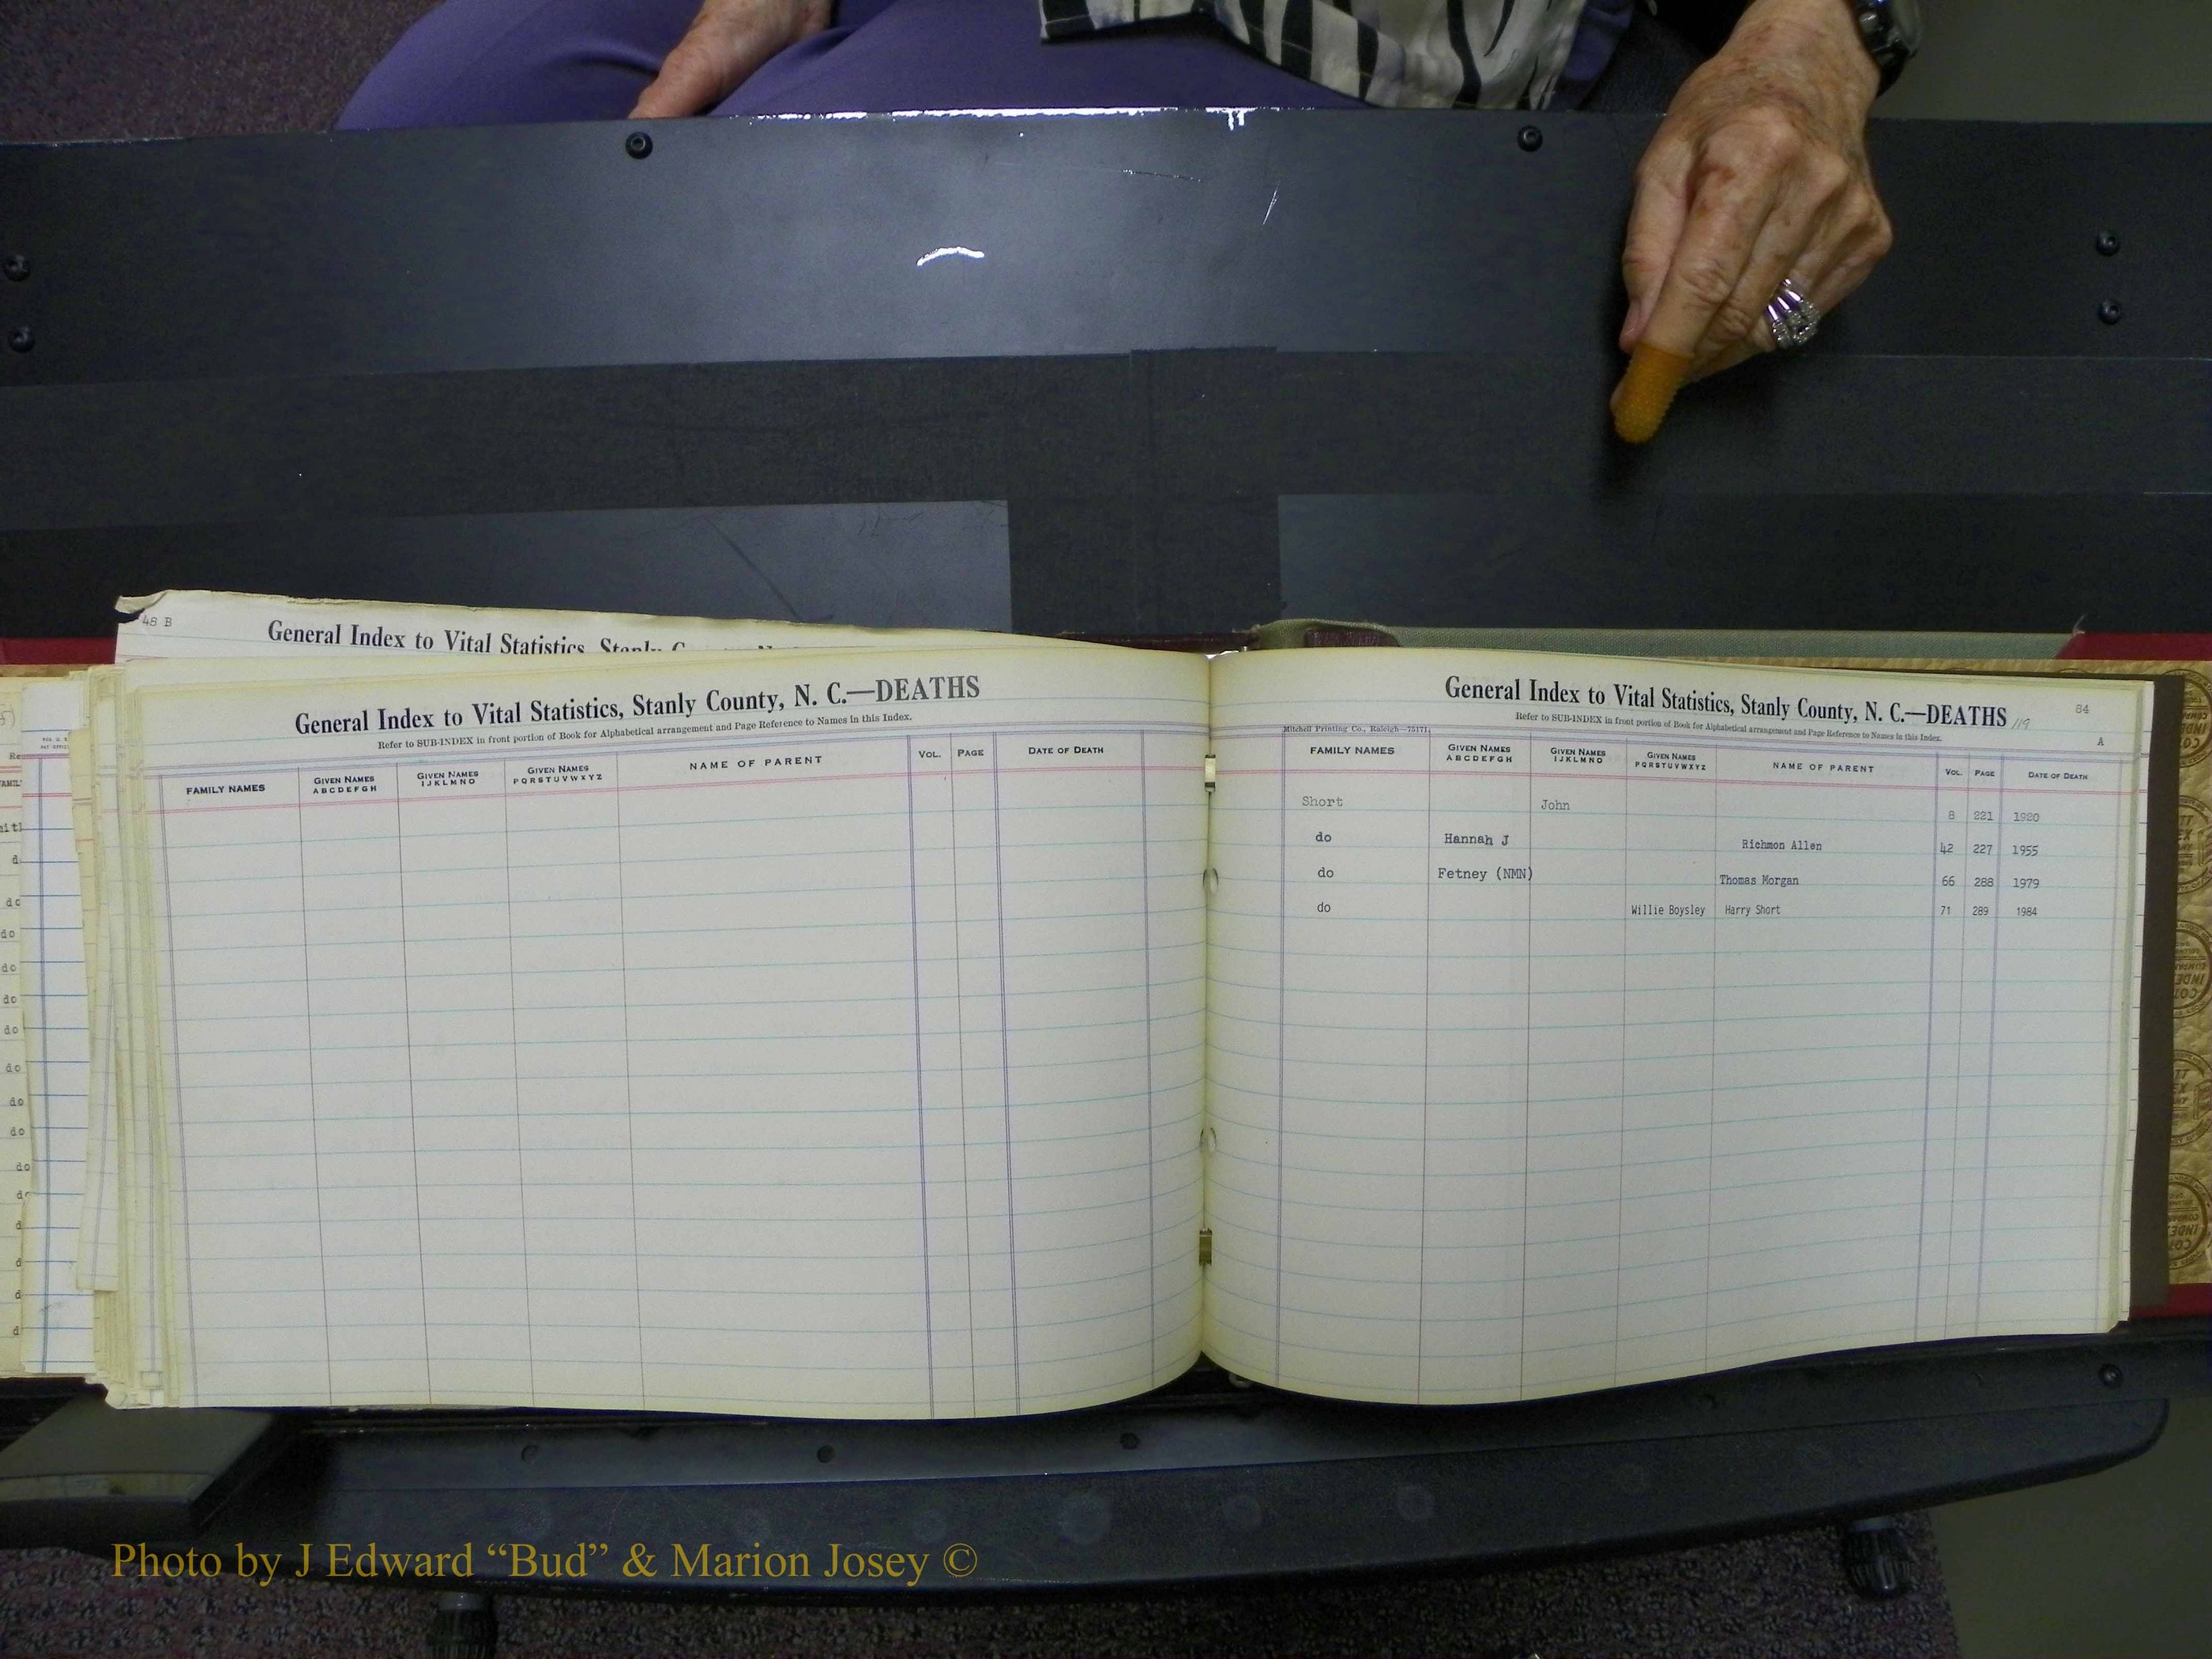 48 B
General Index to Vital Statistics, Stanly
General Index to Vital Statistics, Stanly County, N. C.—DEATHS
Refer to SUB-INDEX in front portion of Book for Alphabetical arrangement and Page Reference to Names in this Index.
FAMILY NAMES GIVEN NAMES ABCDEFGH GIVEN NAMES IJKLMNO GIVEN NAMES PQRSTUVWXYZ NAME OF PARENT VOL. PAGE DATE OF DEATH
do
do
do
do
do
do
do
do
General Index to Vital Statistics, Stanly County, N. C.—DEATHS 119 84
Refer to SUB-INDEX in front portion of Book for Alphabetical arrangement and Page Reference to Names in this Index.
Mitchell Printing Co., Raleigh—75171 A
FAMILY NAMES GIVEN NAMES ABCDEFGH GIVEN NAMES IJKLMNO GIVEN NAMES PQRSTUVWXYZ NAME OF PARENT VOL. PAGE DATE OF DEATH
Short John 8 221 1920
do Hannah J Richmon Allen 42 227 1955
do Fetney (NMN) Thomas Morgan 66 288 1979
do Willie Boysley Harry Short 71 289 1984
Photo by J Edward “Bud” & Marion Josey ©